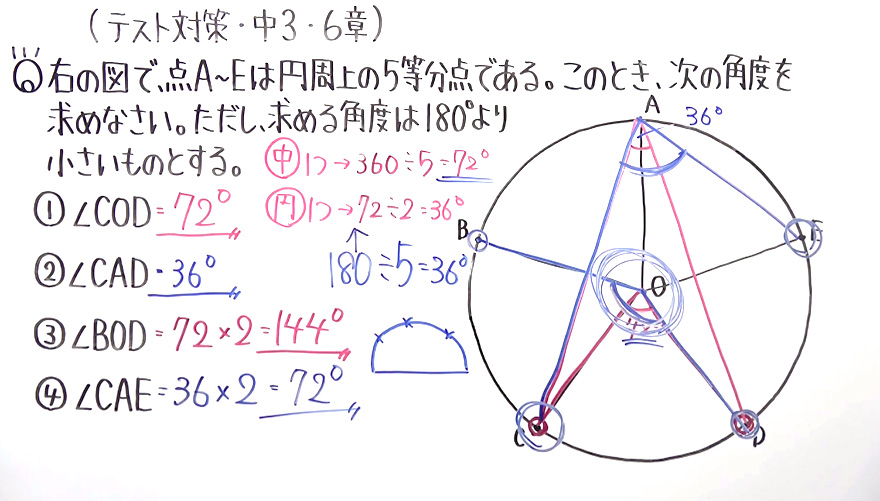 (テスト対策・中3・6章)
Q 右の図で、点A~Eは円周上の5等分点である。このとき、次の角度を
求めなさい。ただし、求める角度は180°より
小さいものとする。
中 1つ→360÷5=72°
円 1つ→72÷2=36°
180÷5=36°
① ∠COD=72°
② ∠CAD・36°
③ ∠BOD=72×2=144°
④ ∠CAE=36×2=72°
A
36°
B
E
O
C
D